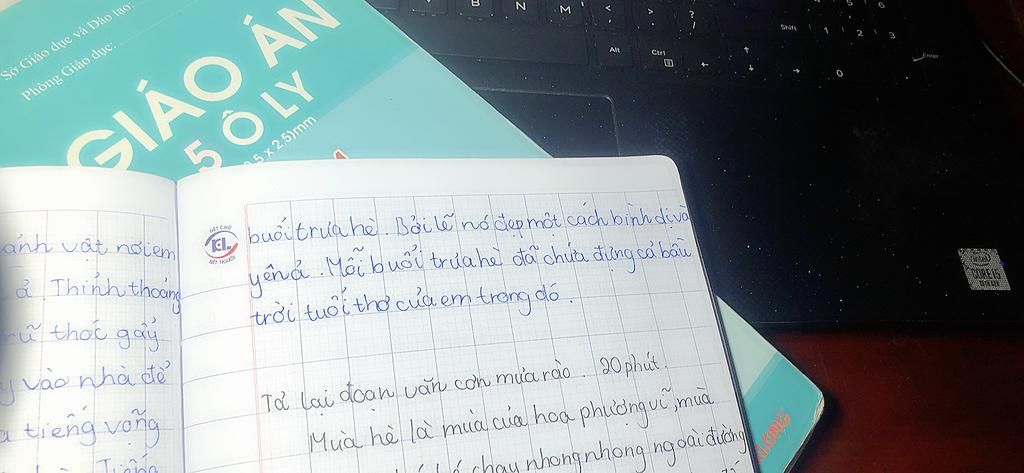 Sở Giáo dục và Đào tạo:
Phòng Giáo dục:
GIÁO ÁN
5 Ô LY
x 2.5)mm
B N M < > ?
, . /
Alt Ctrl
Shift
1 2 3
0
Enter
intel
CORE i5
LONG
ánh vật nơi em
ả. Thỉnh thoảng
thóc gẩy
vào nhà để
tiếng võng
Tiếng
NÉT CHỮ
KL
NẾT NGƯỜI
buổi trưa hè. Bởi lẽ nó đẹp một cách bình dị và
yên ả. Mỗi buổi trưa hè đã chứa đựng cả bầu
trời tuổi thơ của em trong đó.
Tả lại đoạn văn cơn mưa rào. 20 phút.
Mùa hè là mùa của hoa phượng vĩ, mùa
chạy nhong nhong ngoài đường